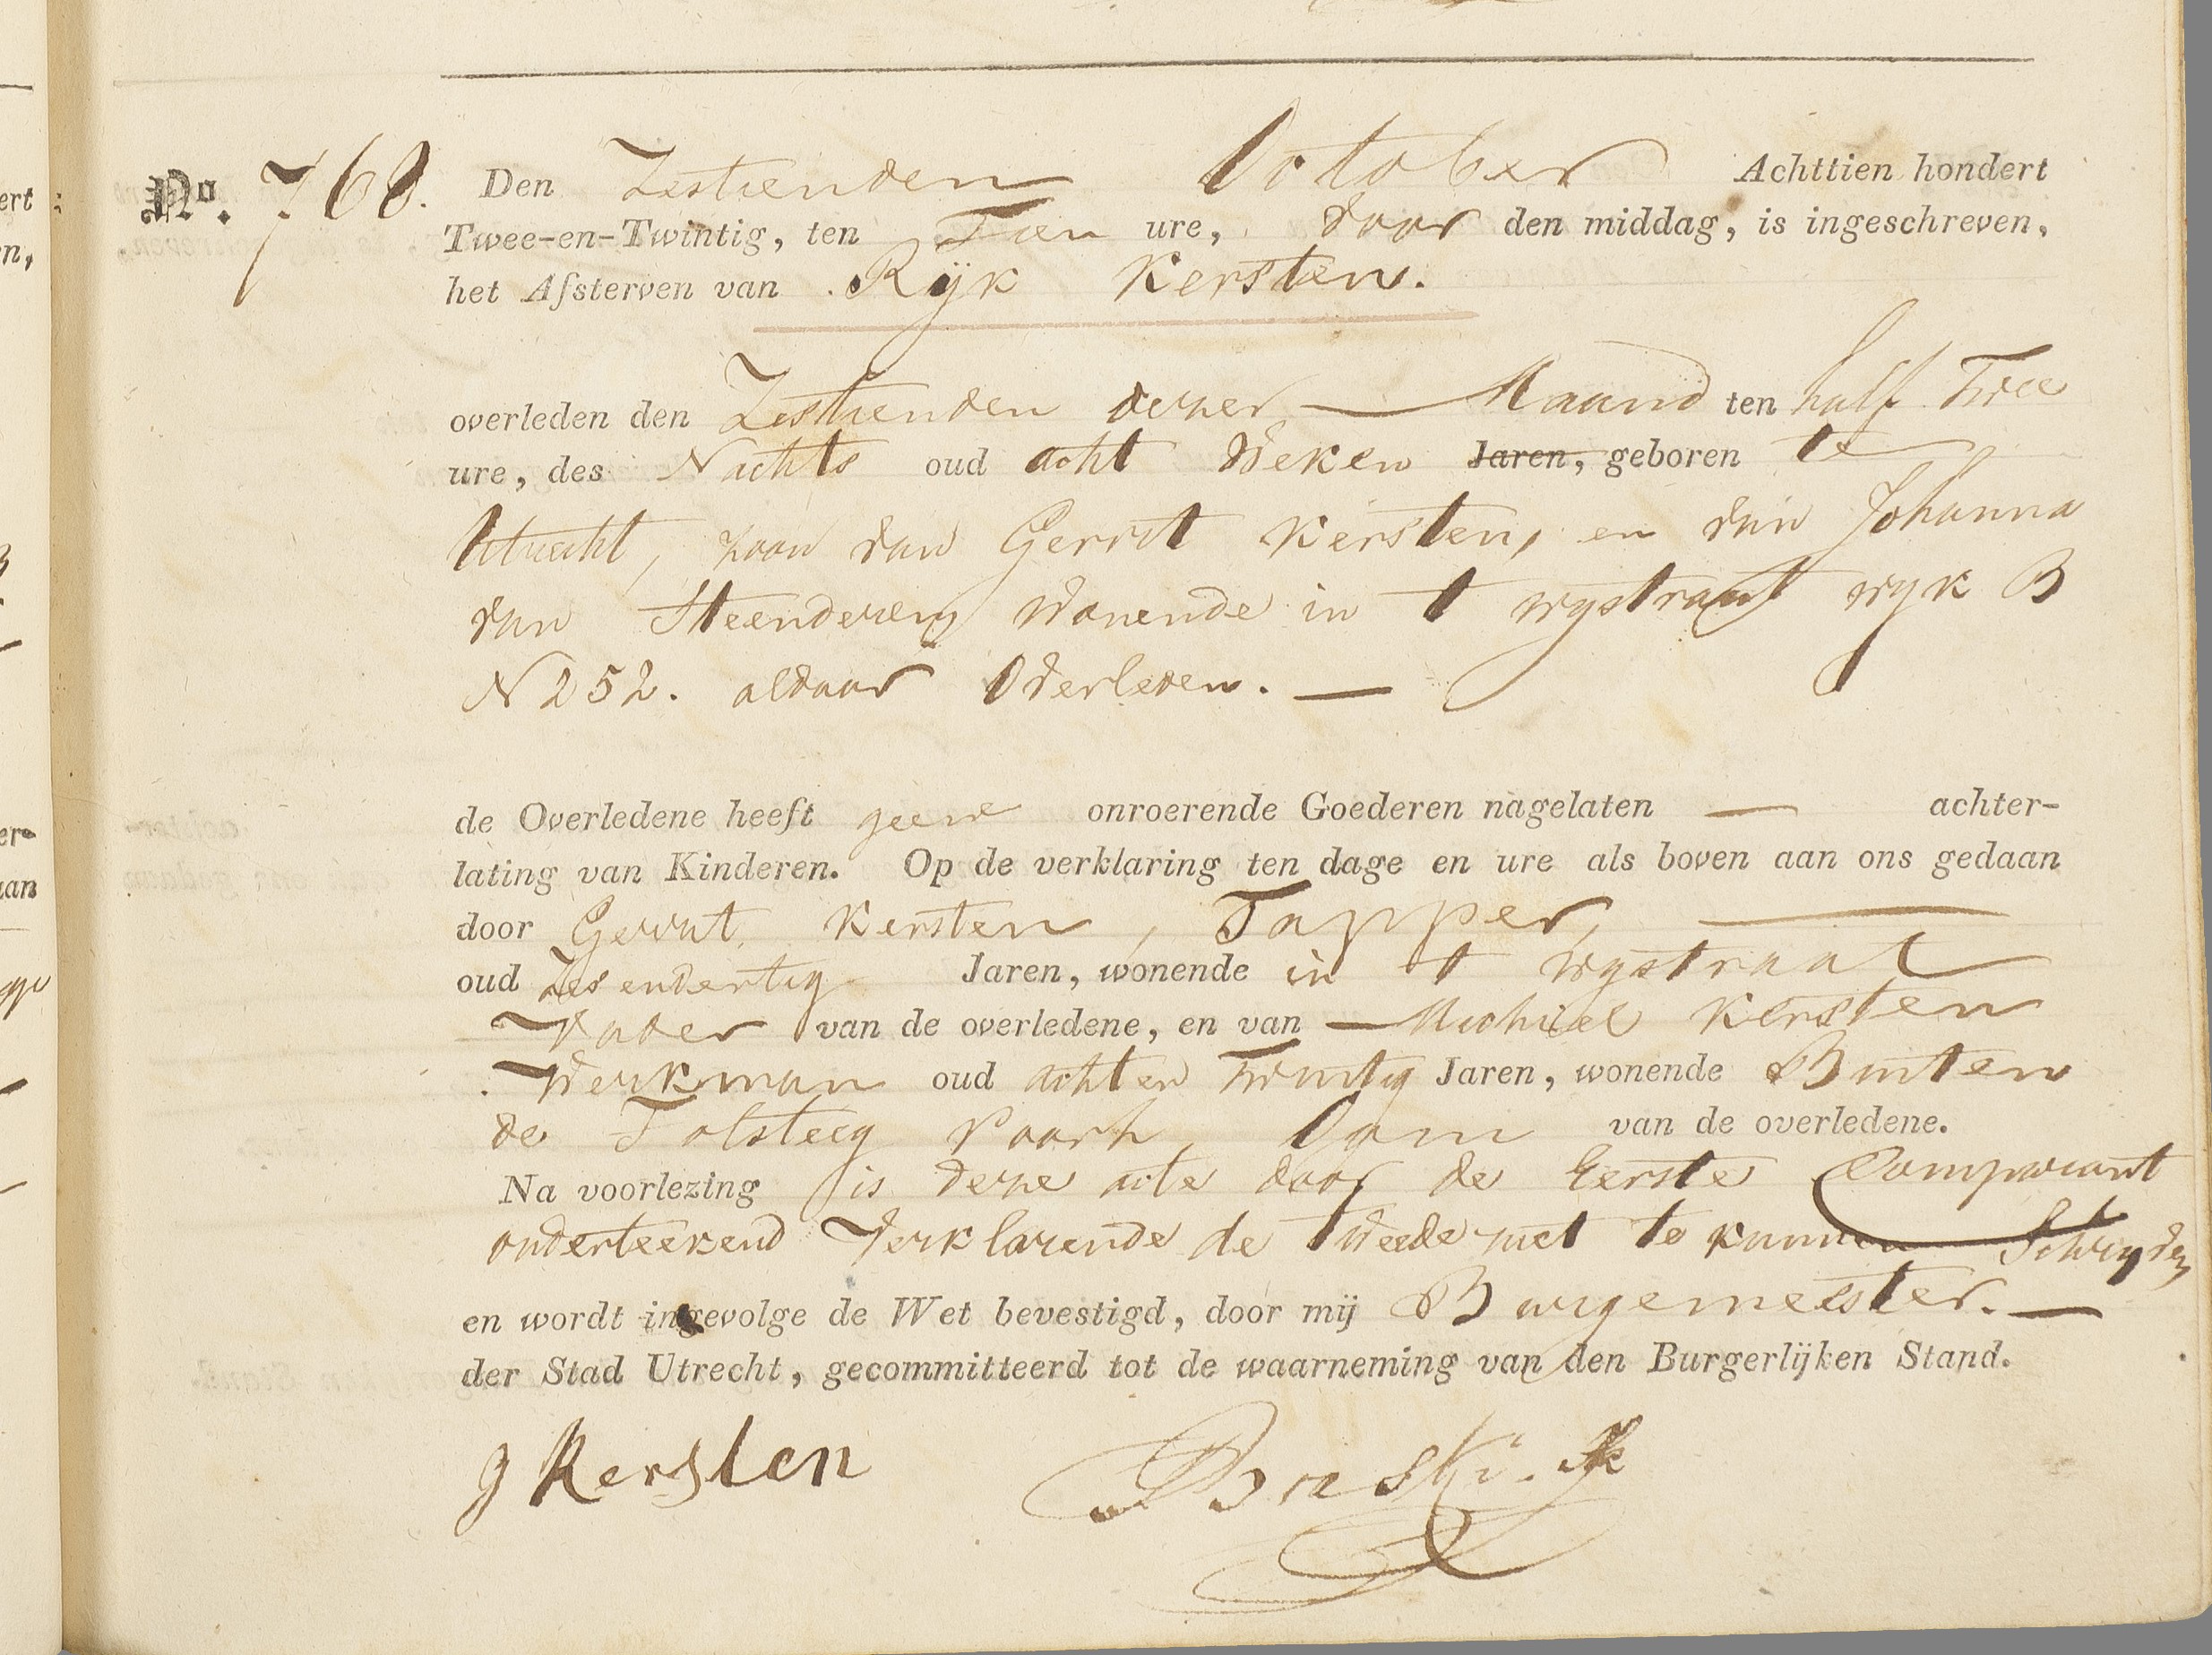 No. 768. Den Zestienden October Achttien hondert
Twee-en-Twintig, ten Tien ure, voor den middag, is ingeschreven,
het Afsterven van Ryk Kersten.
overleden den Zestienden dezer — Maand ten half Twee
ure, des Nachts oud acht Weken Jaren, geboren te
Utrecht, zoon van Gerrit Kersten, en van Johanna
van Steenderen wonende in t wystraat wyk B
N 252. aldaar Overleden. —
de Overledene heeft geene onroerende Goederen nagelaten — achter-
lating van Kinderen. Op de verklaring ten dage en ure als boven aan ons gedaan
door Gerrit Kersten, Tapper, —
oud Zes en dertig Jaren, wonende in t wystraat
Vader van de overledene, en van — Michiel Kersten
Werkman oud acht en Twintig Jaren, wonende Buiten
de Tolsteeg Poort, Oom van de overledene.
Na voorlezing is deze acte door de Eerste Comparant
onderteekend Verklarende de Tweede niet te kunnen Schryven
en wordt ingevolge de Wet bevestigd, door mij Burgemeester. —
der Stad Utrecht, gecommitteerd tot de waarneming van den Burgerlijken Stand.
g Kersten
ert
n,
aan